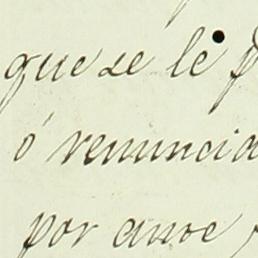 que se le
ó renuncia
por